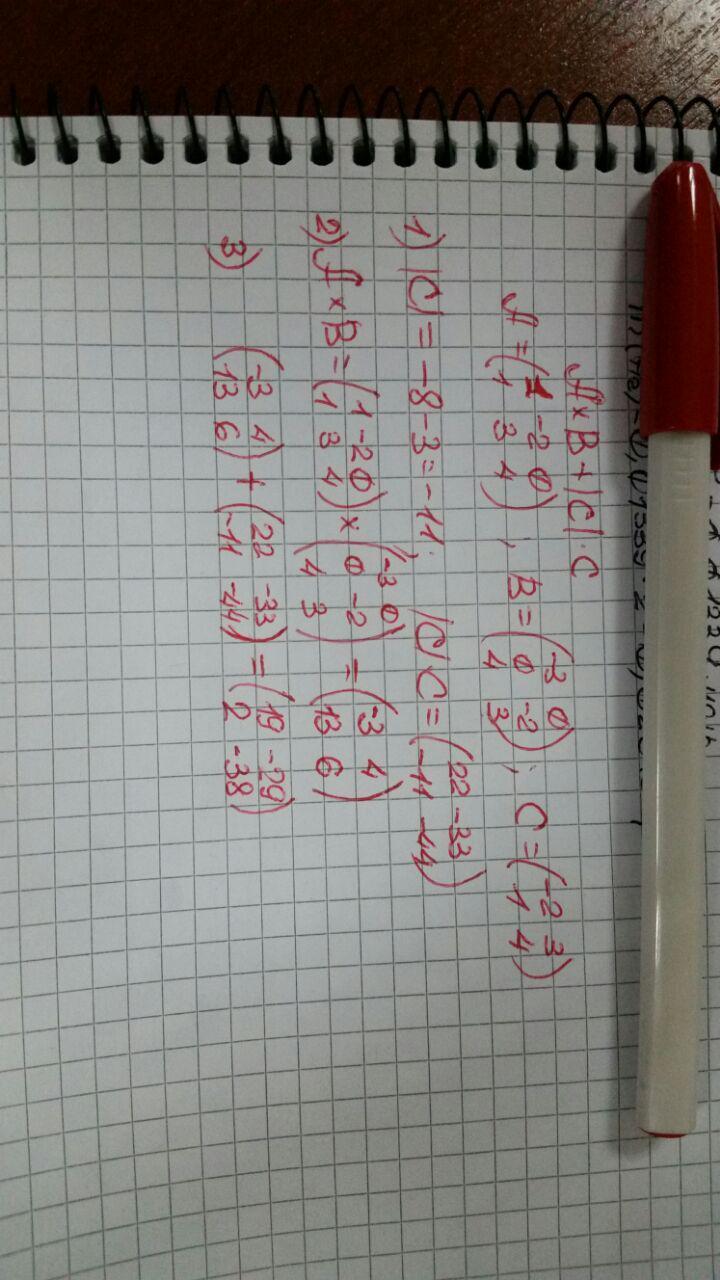 A×B+|C|·C
A = (1 -2 0; 1 3 4); B = (-3 0; 0 -2; 4 3); C = (-2 3; 1 4)
1) |C| = -8-3 = -11. |C| C = (22 -33; -11 -44)
2) A×B = (1 -2 0; 1 3 4) × (-3 0; 0 -2; 4 3) = (-3 4; 13 6)
3) (-3 4; 13 6) + (22 -33; -11 -44) = (19 -29; 2 -38)